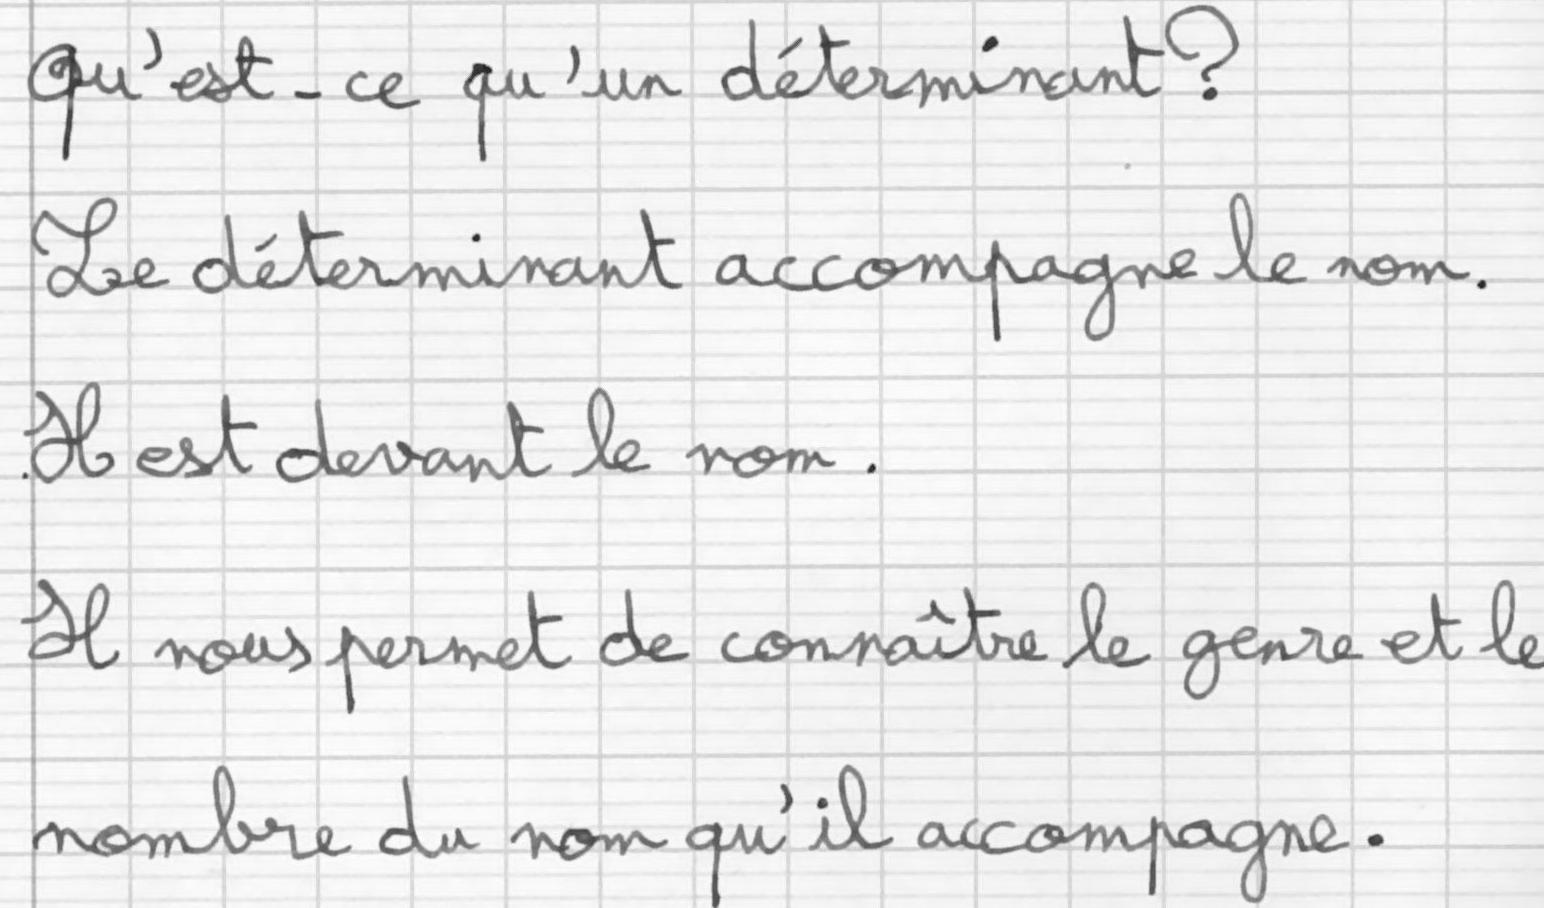 Qu'est-ce qu'un déterminant?
Le déterminant accompagne le nom.
Il est devant le nom.
Il nous permet de connaître le genre et le
nombre du nom qu'il accompagne.